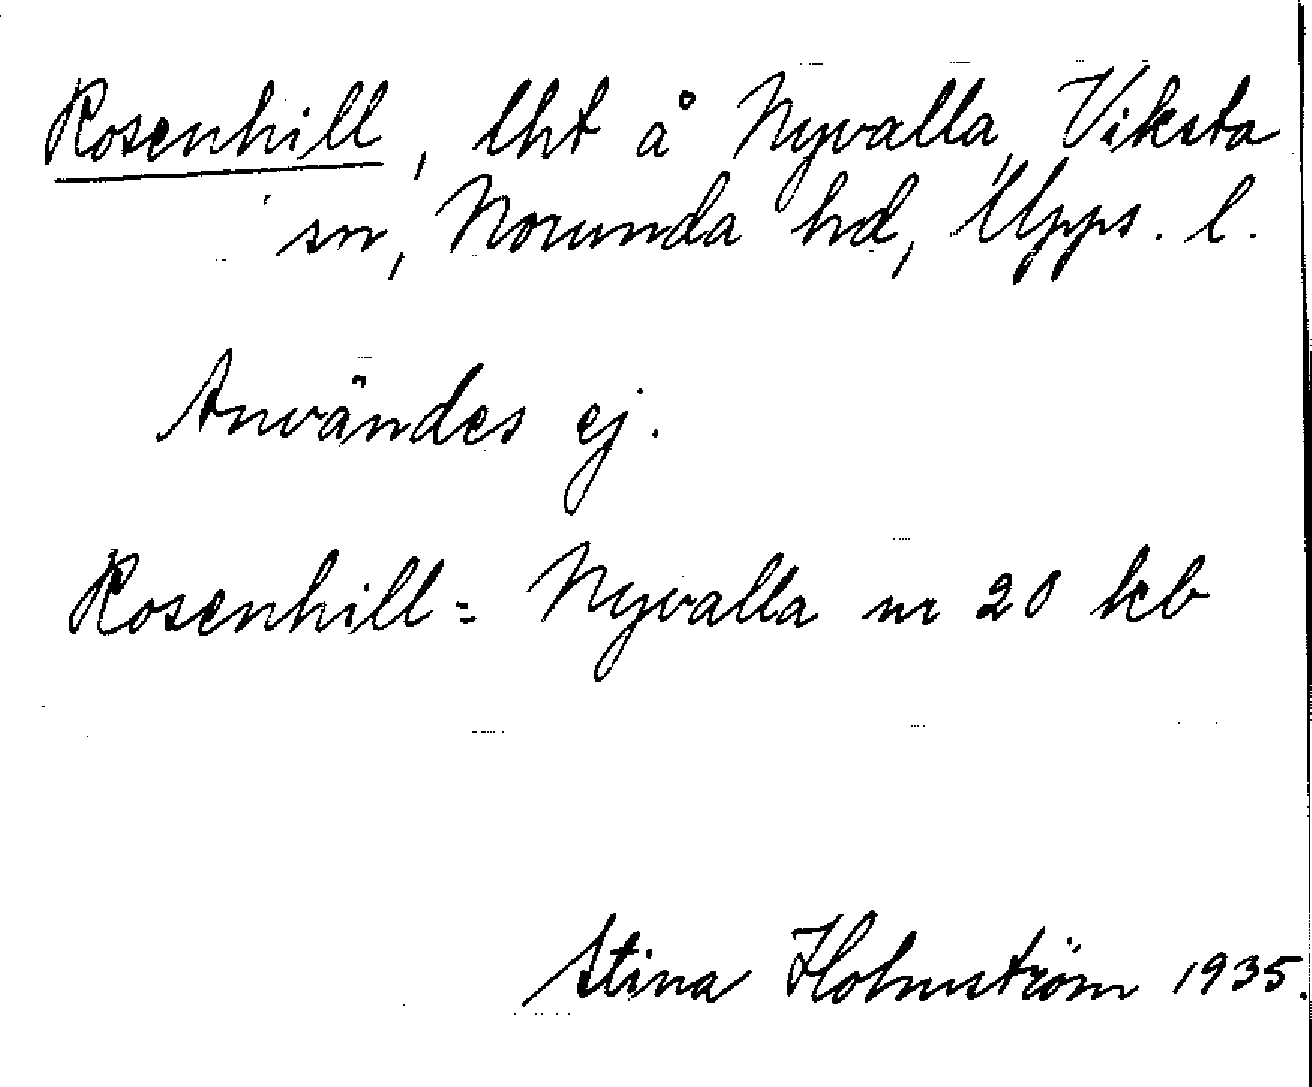 Rosenhill, lht å Nyvalla, Viksta
sn, Norunda hd, Upps. l.
Användes ej.
Rosenhill = Nyvalla nr 20 kb
Stina Holmström 1935.